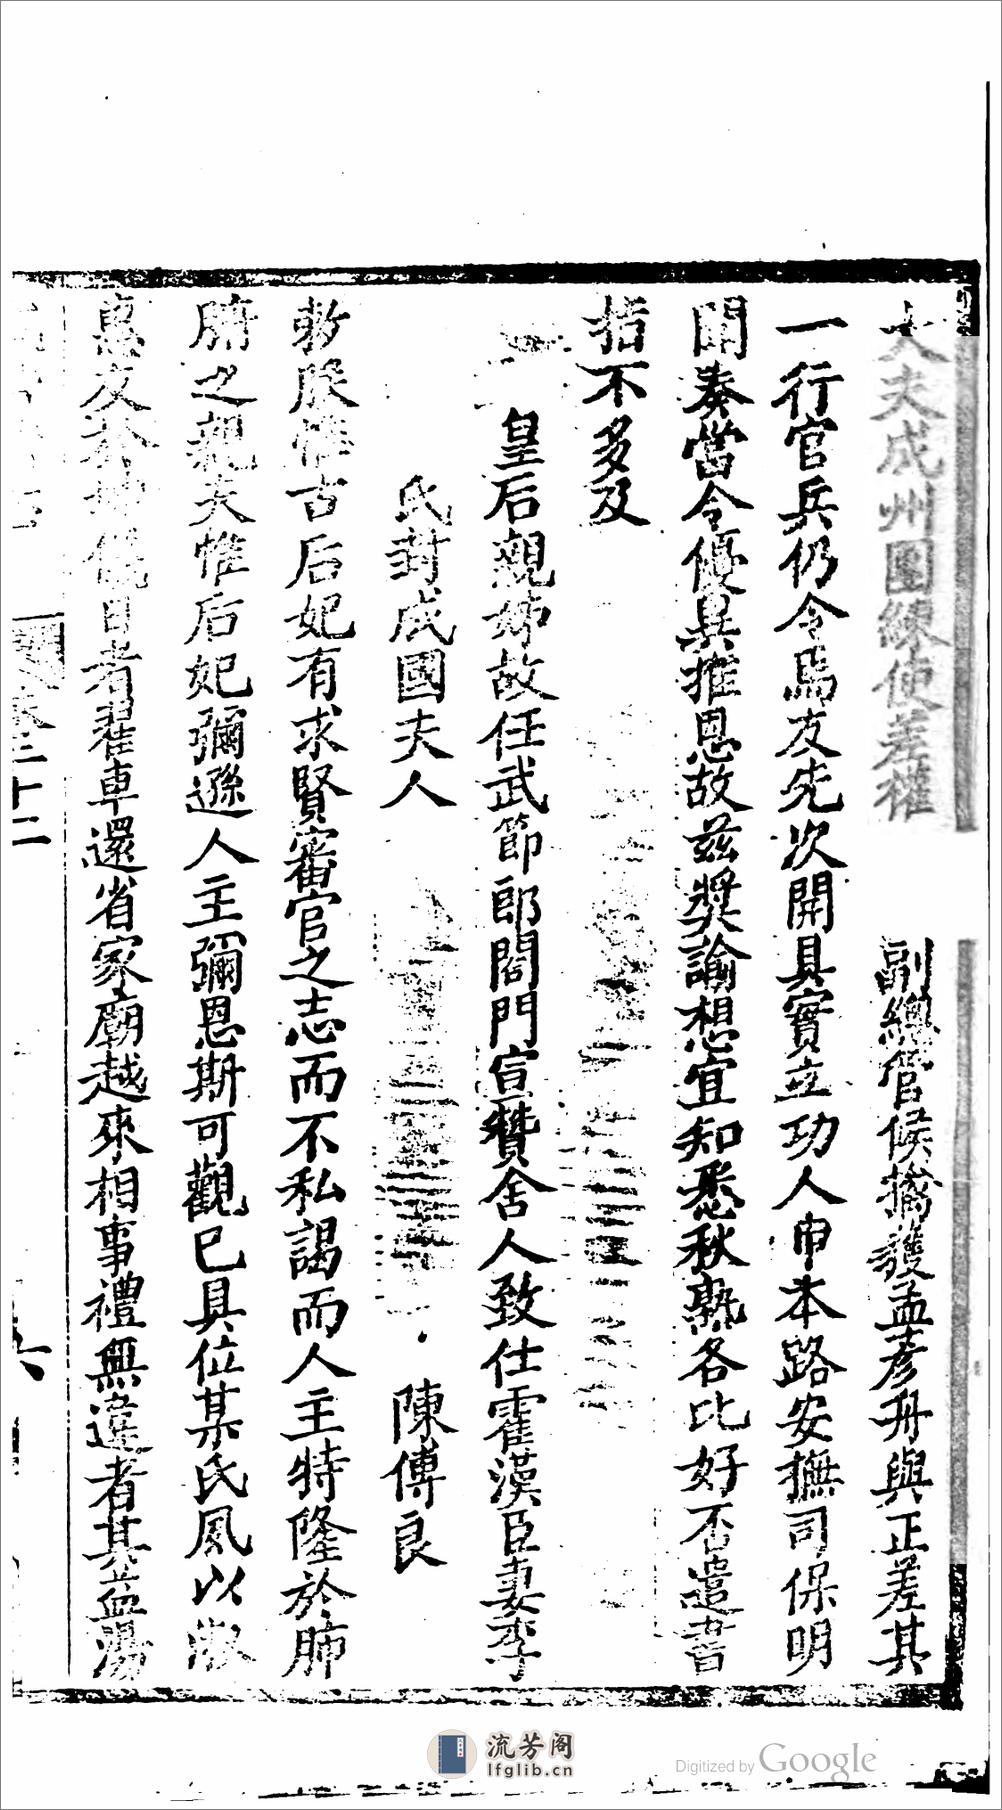 大夫成州團練使差權　副總管候擒獲孟彥舟與正差其
一行官兵仍令馬友先次開具實立功人申本路安撫司保明
聞奏當令優異推恩故茲奬諭想宜知悉秋熟各比好否遣書
指不多及
皇后親姊故任武節郎閤門宣贊舍人致仕霍漢臣妻李
氏封成國夫人　陳傅良
敕朕惟古后妃有求賢審官之志而不私謁而人主特隆於肺
腑之親夫惟后妃彌遜人主彌恩斯可觀已具位某氏風以淑
惠友于日者翟車還省家廟越來相事禮無違者其益湯
卷三十二
六
流芳阁
lfglib.cn
Digitized by Google